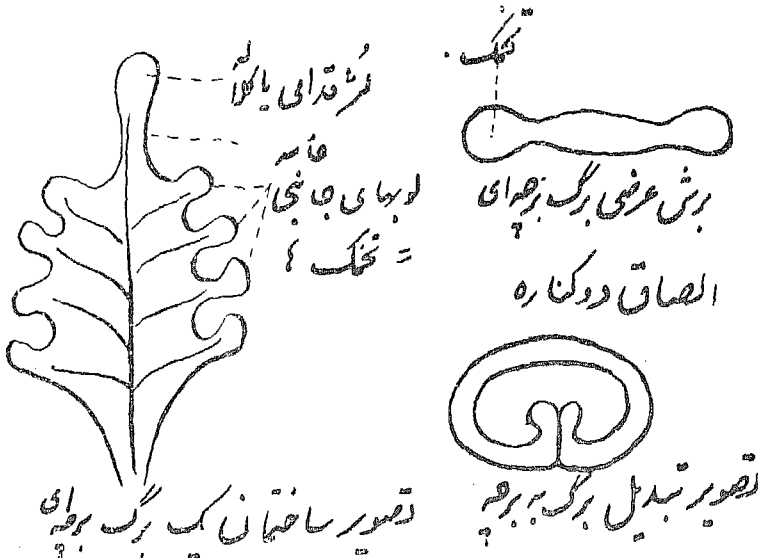 تخمک
لژ قدامی یا کلاله
خامه
لوبهای جانبی
= تخمک ها
برش عرضی برگ برچه‌ای
الصاق دو کناره
تصویر تبدیل برگ به برچه
تصویر ساختمان یک برگ برچه‌ای